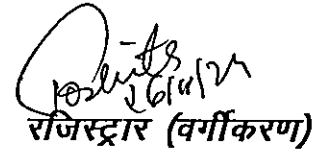 26/11/24
रजिस्ट्रार (वर्गीकरण)